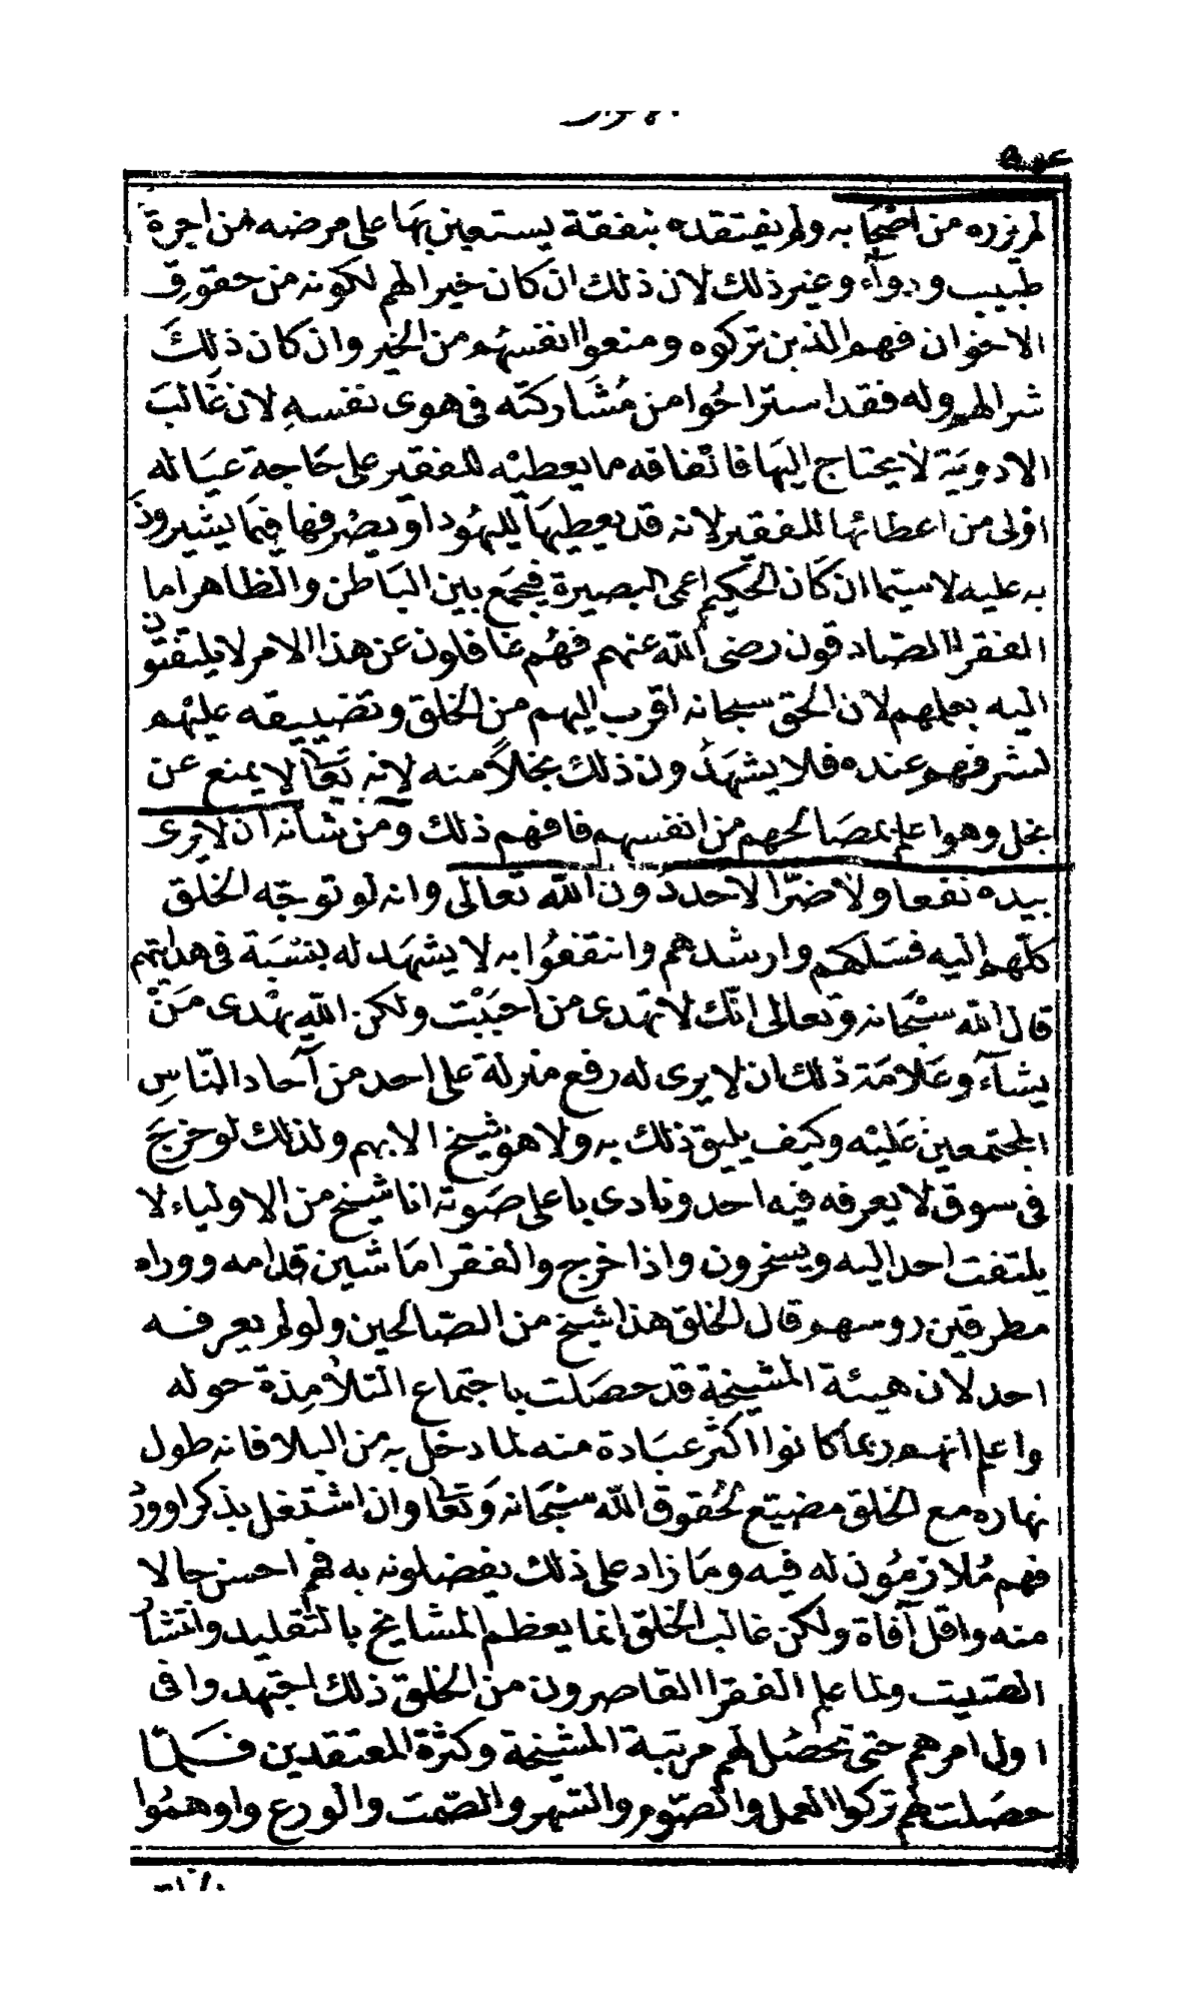 لم يزره من اصحابه ولم يفتقده بنفقة يستعين بها على مرضه من اجرة
طبيب ودواء وغير ذلك لان ذلك ان كان خيرا لهم لكونه من حقوق
الاخوان فهم الذين تركوه ومنعوا انفسهم من الخير وان كان ذلك
شرالهم وله فقد استراحوا من مُشاركته فى هوى نفسهِ لان غالبَ
الادوية لا يحتاج اليها فانفاقه ما يعطيه للفقير على حاجة عياله
اولى من اعطائها للفقير لانه قد يعطيها لليهود او يصرفها فيما يشيرون
به عليه لاسيما ان كان الحكيم اعمى البصيرة فيجمع بين الباطن والظاهر اما
الفقرا الصادقون رضى الله عنهم فهُم غافلون عن هذا الامر لا يلتفتون
اليه بعلمهم لان الحق سبحانه اقرب اليهم من الخلق وتضييقه عليهم
لشرفهم عنده فلا يشهدون ذلك بخلاً منه لانه تعالى لا يمنع عن
بخل وهو اعلم بمصالحهم من انفسهم فافهم ذلك ومن شانه ان لا يرى
بيده نفعا ولا ضرّا لاحد دون الله تعالى وانه لو توجّه الخلق
كلّهم اليه فسلكهم وارشدهم وانتفعُوا به لا يشهد له بنسبة فى هدايتهم
قال الله سبحانه وتعالى انّك لا تهدى من احببْت ولكن الله يهْدى مَنْ
يشآء وعلامة ذلك ان لا يرى له رفع منزلة على احد من آحاد النّاس
المجتمعين عليْه وكيف يليق ذلك به ولا هو شيخ الا بهم ولذلك لو خرج
فى سوق لا يعرفه فيه احد ونادى باعلى صَوته انا شيخ من الاولياء لا
يلتفت احد اليه ويسخرون واذا خرج والفقرا ماشين قدامه ووراه
مطرقين روسهم قال الخلق هذا شيخ من الصّالحين ولو لم يعرفه
احد لان هيئة المشيخة قد حصَلت باجتماع التلامِذة حوله
واعلم انهم ربما كانوا اكثر عبَادة منه لما دخل به من البلا فانه طول
نهاره مع الخلق مضيّع لحُقوق الله سبْحانه وَتعالى وان اشتغل بذكر او ورد
فهم مُلازمُون له فيه وما زاد على ذلك يفضلونه به فهم احسن حالا
منه واقل آفاة ولكن غالب الخلق انما يعظم المشايخ بالتّقليد وانتشار
الصّيت ولما علم الفقرا القاصرون من الخلق ذلك اجتهدوا فى
اول امرهم حتى تحصُل لهم مرتبة المشيخة وكثرة المعتقدين فلمّا
حصَلت لهم تركوا العمل والصّوم والسّهر والصّمت والورع واوهمُوا